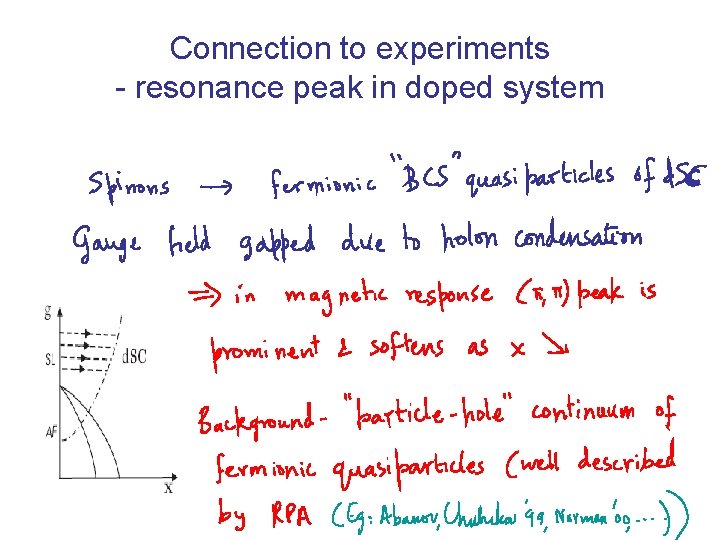 Connection to experiments
- resonance peak in doped system
Spinons → fermionic "BCS" quasiparticles of dSC
Gauge field gapped due to holon condensation
⇒ in magnetic response (π, π) peak is
prominent & softens as x ↘
g
SL
dSC
AF
x
Background - "particle-hole" continuum of
fermionic quasiparticles (well described
by RPA (Eg: Abanov, Chubukov '99, Norman '00, ... ))